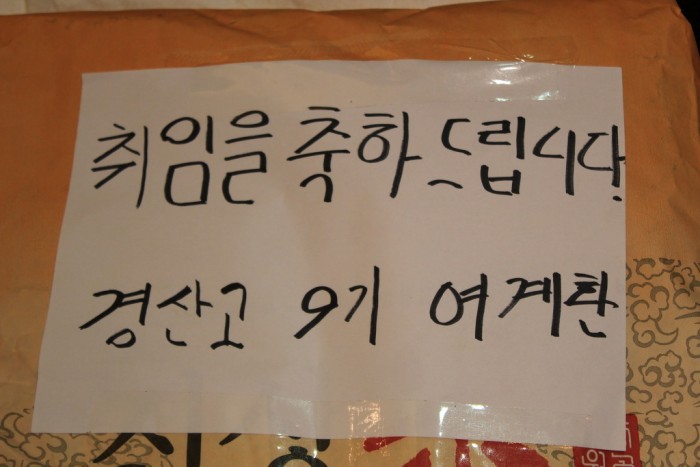 취임을 축하 드립니다.
경산고 9기 여계환